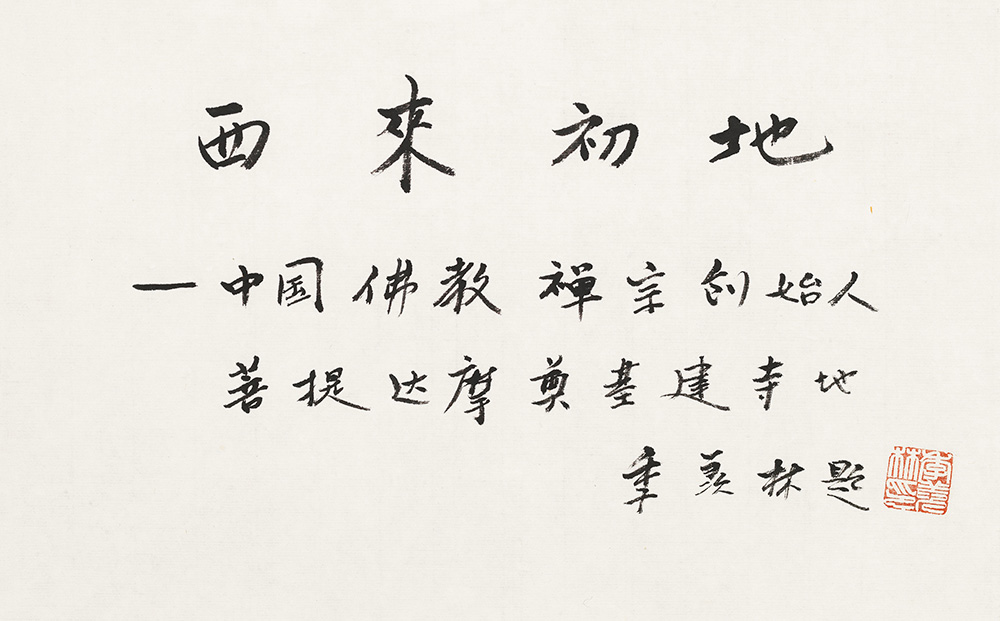 西來初地
—中国佛教禅宗创始人
菩提达摩奠基建寺地
季羡林题
季羡林印